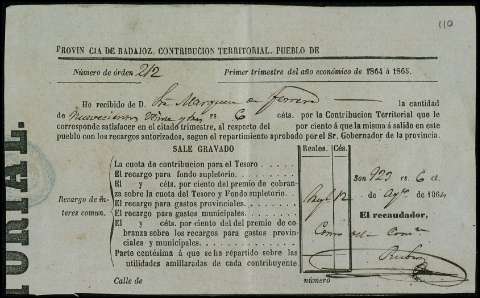 110
PROVINCIA DE BADAJOZ. CONTRIBUCION TERRITORIAL. PUEBLO DE
Número de órden 212
Primer trimestre del año económico de 1864 á 1865.
He recibido de D. Marques de la cantidad
de rs. 6 cénts. por la Contribucion Territorial que le
corresponde satisfacer en el citado trimestre, al respecto del por ciento á que la misma á salido en este
pueblo con los recargos autorizados, segun el repartimiento aprobado por el Sr. Gobernador de la provincia.
SALE GRAVADO
Reales. Cés.
La cuota da contribucion para el Tesoro
El recargo para fondo supletorio
El y cénts. por ciento del premio de cobranza
sobre la cuota del Tesoro y Fondo supletorio.
El recargo para gastos provinciales.
El recargo para gastos municipales.
El y cénts. por ciento del del premio de cobranza
sobre los recargos para gastos provinciales
y municipales.
Parte centésima á que se ha repartido sobre las
utilidades amillaradas de cada contribuyente
Recargo de interes
comun.
Son 923 rs. 6 c.
de Agto de 1864
El recaudador,
Rubio
Calle de
número
TORIAL.